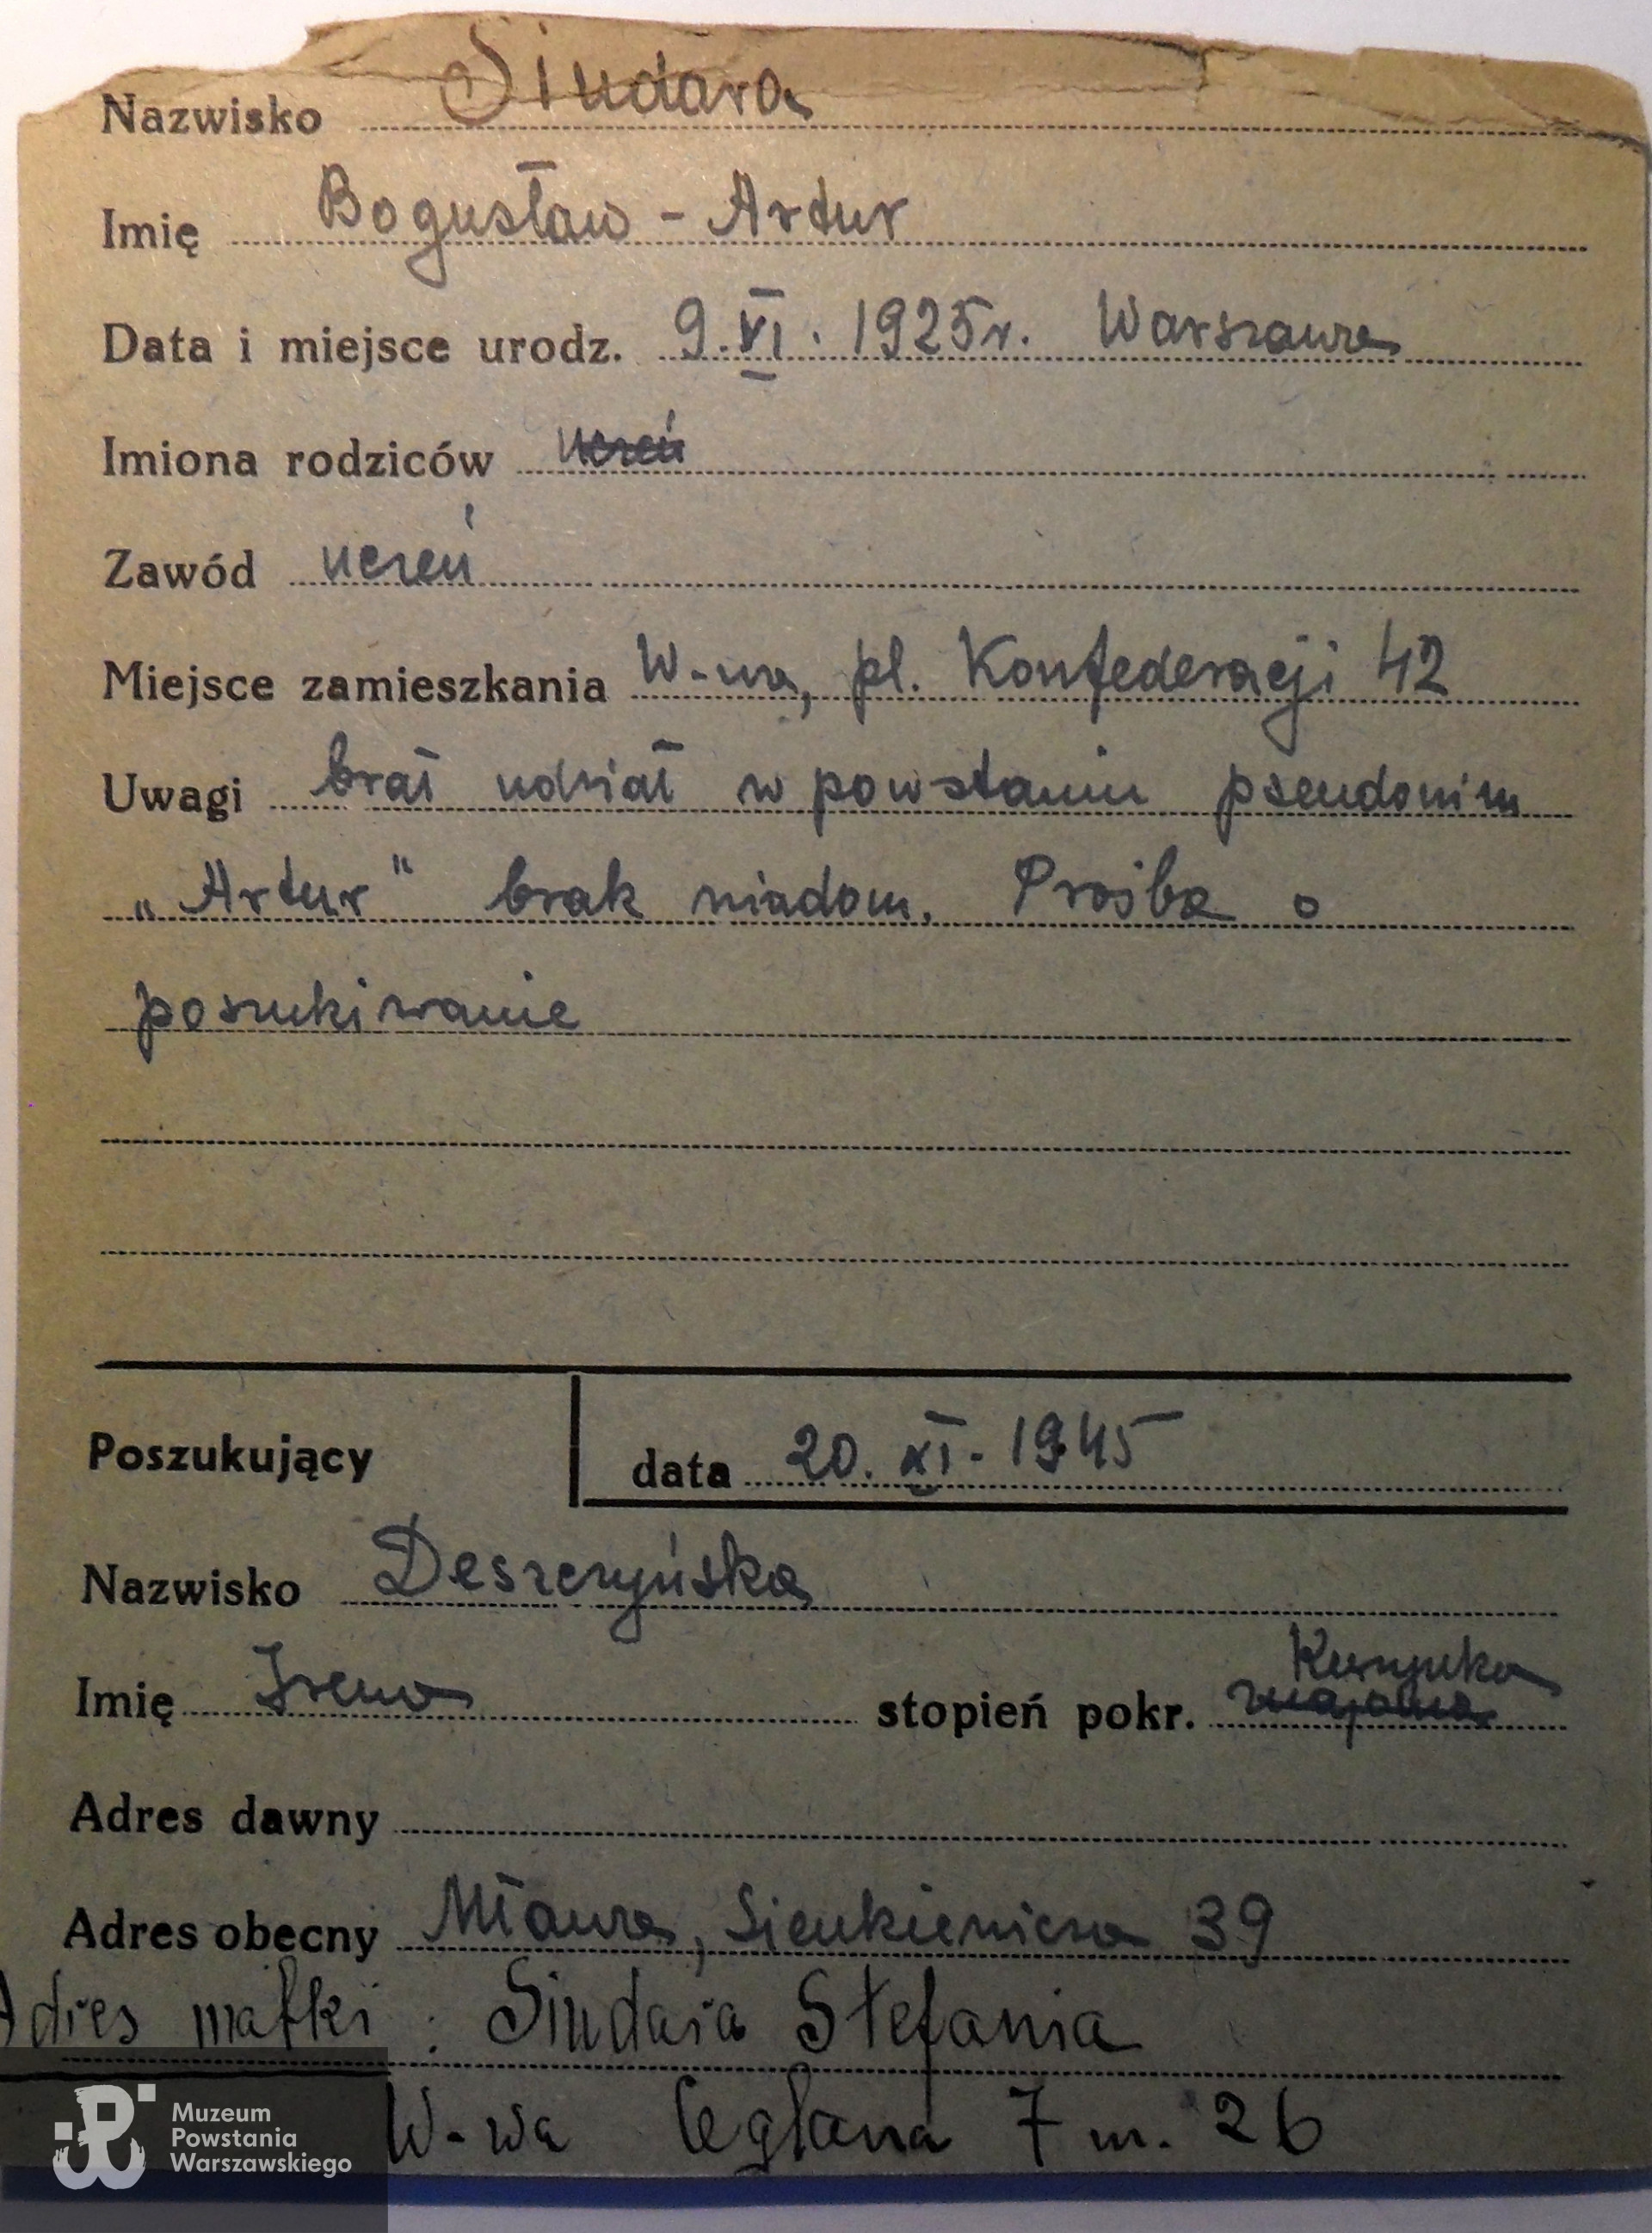 Nazwisko Sindara
Imię Bogusław - Artur
Data i miejsce urodz. 9.VI. 1925r. Warszawa
Imiona rodziców uczeń
Zawód uczeń
Miejsce zamieszkania W-wa, pl. Konfederacji 42
Uwagi brał udział w powstaniu pseudonim
„Artur" brak wiadom. Prośba o
poszukiwanie
Poszukujący data 20. XI. 1945
Nazwisko Deszczyńska
Kuzynka
Imię Irena stopień pokr. znajoma
Adres dawny
Adres obecny Mława, Sienkiewicza 39
Adres matki : Sindara Stefania
W-wa Ceglana 7 m. 26
Muzeum
Powstania
Warszawskiego